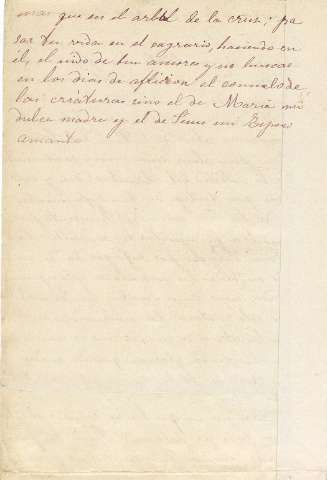 mas que en el arbol de la crus; pa
sar tu vida en el sagrario, haciendo en
él, el nido de tun amores y no buscas
en los dias de aflicion el consuelo de
las criaturas sino el de Maria mi
dulce madre y el de Jesus mi Esposo
amante